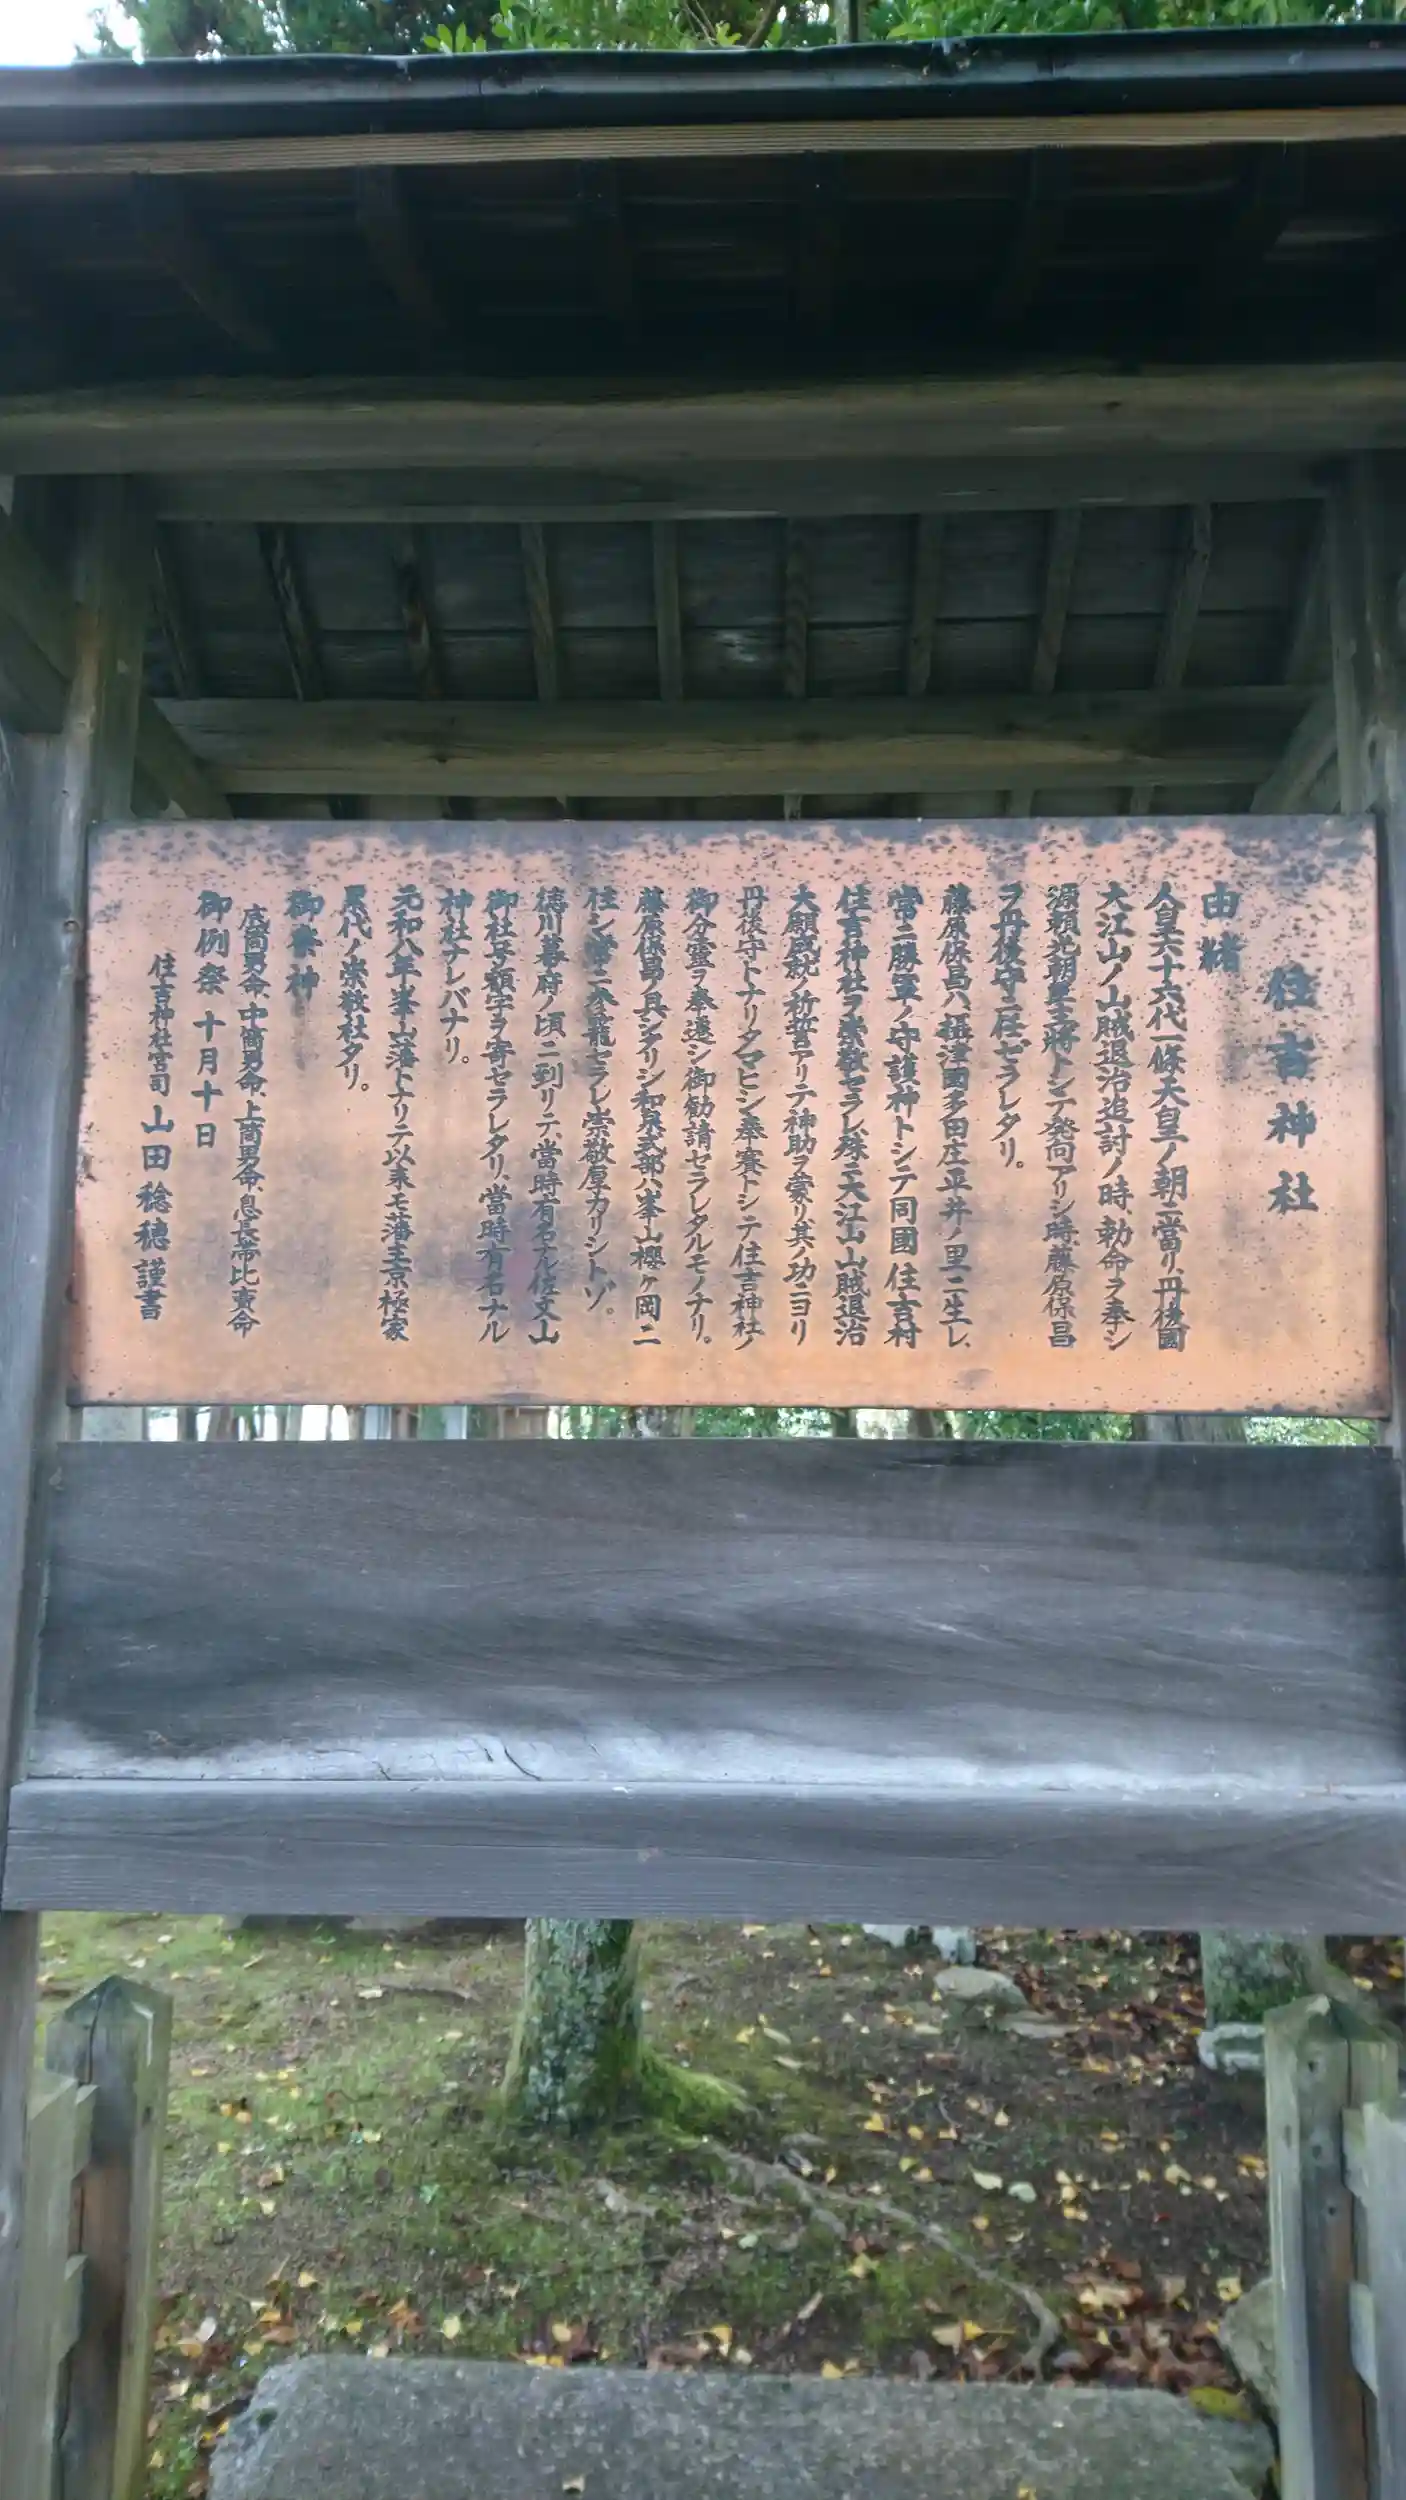 住吉神社
由緒
人皇六十六代一條天皇ノ朝ニ當リ、丹後國
大江山ノ山賊退治追討ノ時、勅命ヲ奉シ
源頼光朝臣主將トシテ発向アリシ時、藤原保昌
ヲ丹後守ニ任ゼラレタリ。
藤原保昌ハ、攝津國多田庄平井ノ里ニ生レ、
常ニ勝軍ノ守護神トシテ同國住吉村
住吉神社ヲ崇敬セラレ、殊ニ大江山山賊退治
大願成就ノ祈誓アリテ神助ヲ蒙リ、其ノ功ニヨリ
丹後守トナリタマヒシ奉賽トシテ住吉神社ノ
御分靈ヲ奉遷シ御勧請セラレタルモノナリ。
藤原保昌ノ具シタリシ和泉式部ハ峯山櫻ヶ岡ニ
住シ常ニ参籠セラレ崇敬厚カリシトゾ。
徳川幕府ノ頃ニ到リテ、當時有名ナル佐文山
御社号額字ヲ寄セラレタリ、當時有名ナル
神社ナレバナリ。
元和八年峯山藩トナリテ以来モ藩主京極家
累代ノ崇敬社タリ。
御祭神
底筒男命、中筒男命、上筒男命、息長帯比賣命
御例祭 十月十日
住吉神社宮司 山田稔穂謹書